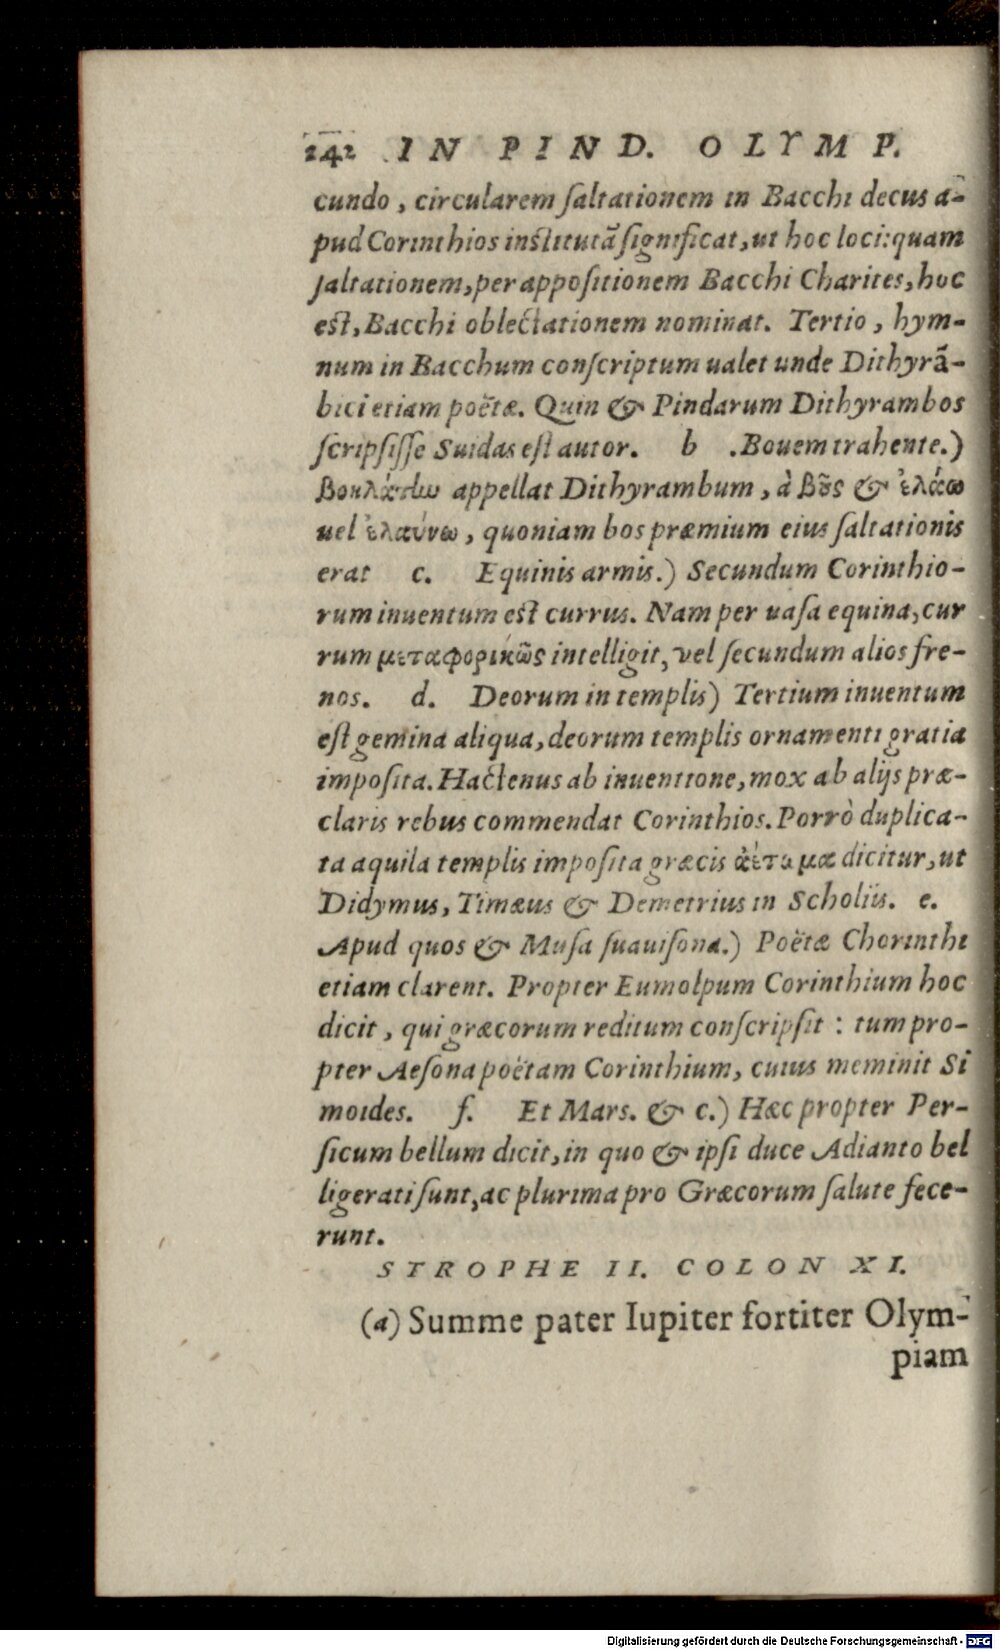 242 IN PIND. OLYMP.
cundo, circularem ſaltationem in Bacchi decus a-
pud Corinthios inſtitutã ſignificat, ut hoc loci: quam
ſaltationem, per appoſitionem Bacchi Charites, hoc
eſt, Bacchi oblectationem nominat. Tertio, hym-
num in Bacchum conſcriptum ualet unde Dithyrã-
bici etiam poëtæ. Quin & Pindarum Dithyrambos
ſcripſiſſe Suidas eſt autor. b .Bouem trahente.)
appellat Dithyrambum, à βοῦς & ἐλάω
uel ἐλαύνω, quoniam bos præmium eius ſaltationis
erat c. Equinis armis.) Secundum Corinthio-
rum inuentum eſt currus. Nam per uaſa equina, cur
rum μεταφορικῶς intelligit, vel ſecundum alios fre-
nos. d. Deorum in templis) Tertium inuentum
eſt gemina aliqua, deorum templis ornamenti gratia
impoſita. Hactenus ab inuentione, mox ab alijs præ-
claris rebus commendat Corinthios. Porrò duplica-
ta aquila templis impoſita græcis ἀέτωμα dicitur, ut
Didymus, Timæus & Demetrius in Scholiis. e.
Apud quos & Muſa ſuauiſona.) Poëtæ Chorinthi
etiam clarent. Propter Eumolpum Corinthium hoc
dicit, qui græcorum reditum conſcripſit : tum pro-
pter Aeſona poëtam Corinthium, cuius meminit Si
moides. f. Et Mars. & c.) Hæc propter Per-
ſicum bellum dicit, in quo & ipſi duce Adianto bel
ligerati ſunt, ac plurima pro Græcorum ſalute fece-
runt.
STROPHE II. COLON XI.
(a) Summe pater Iupiter fortiter Olym-
piam
Digitalisierung gefördert durch die Deutsche Forschungsgemeinschaft - DFG